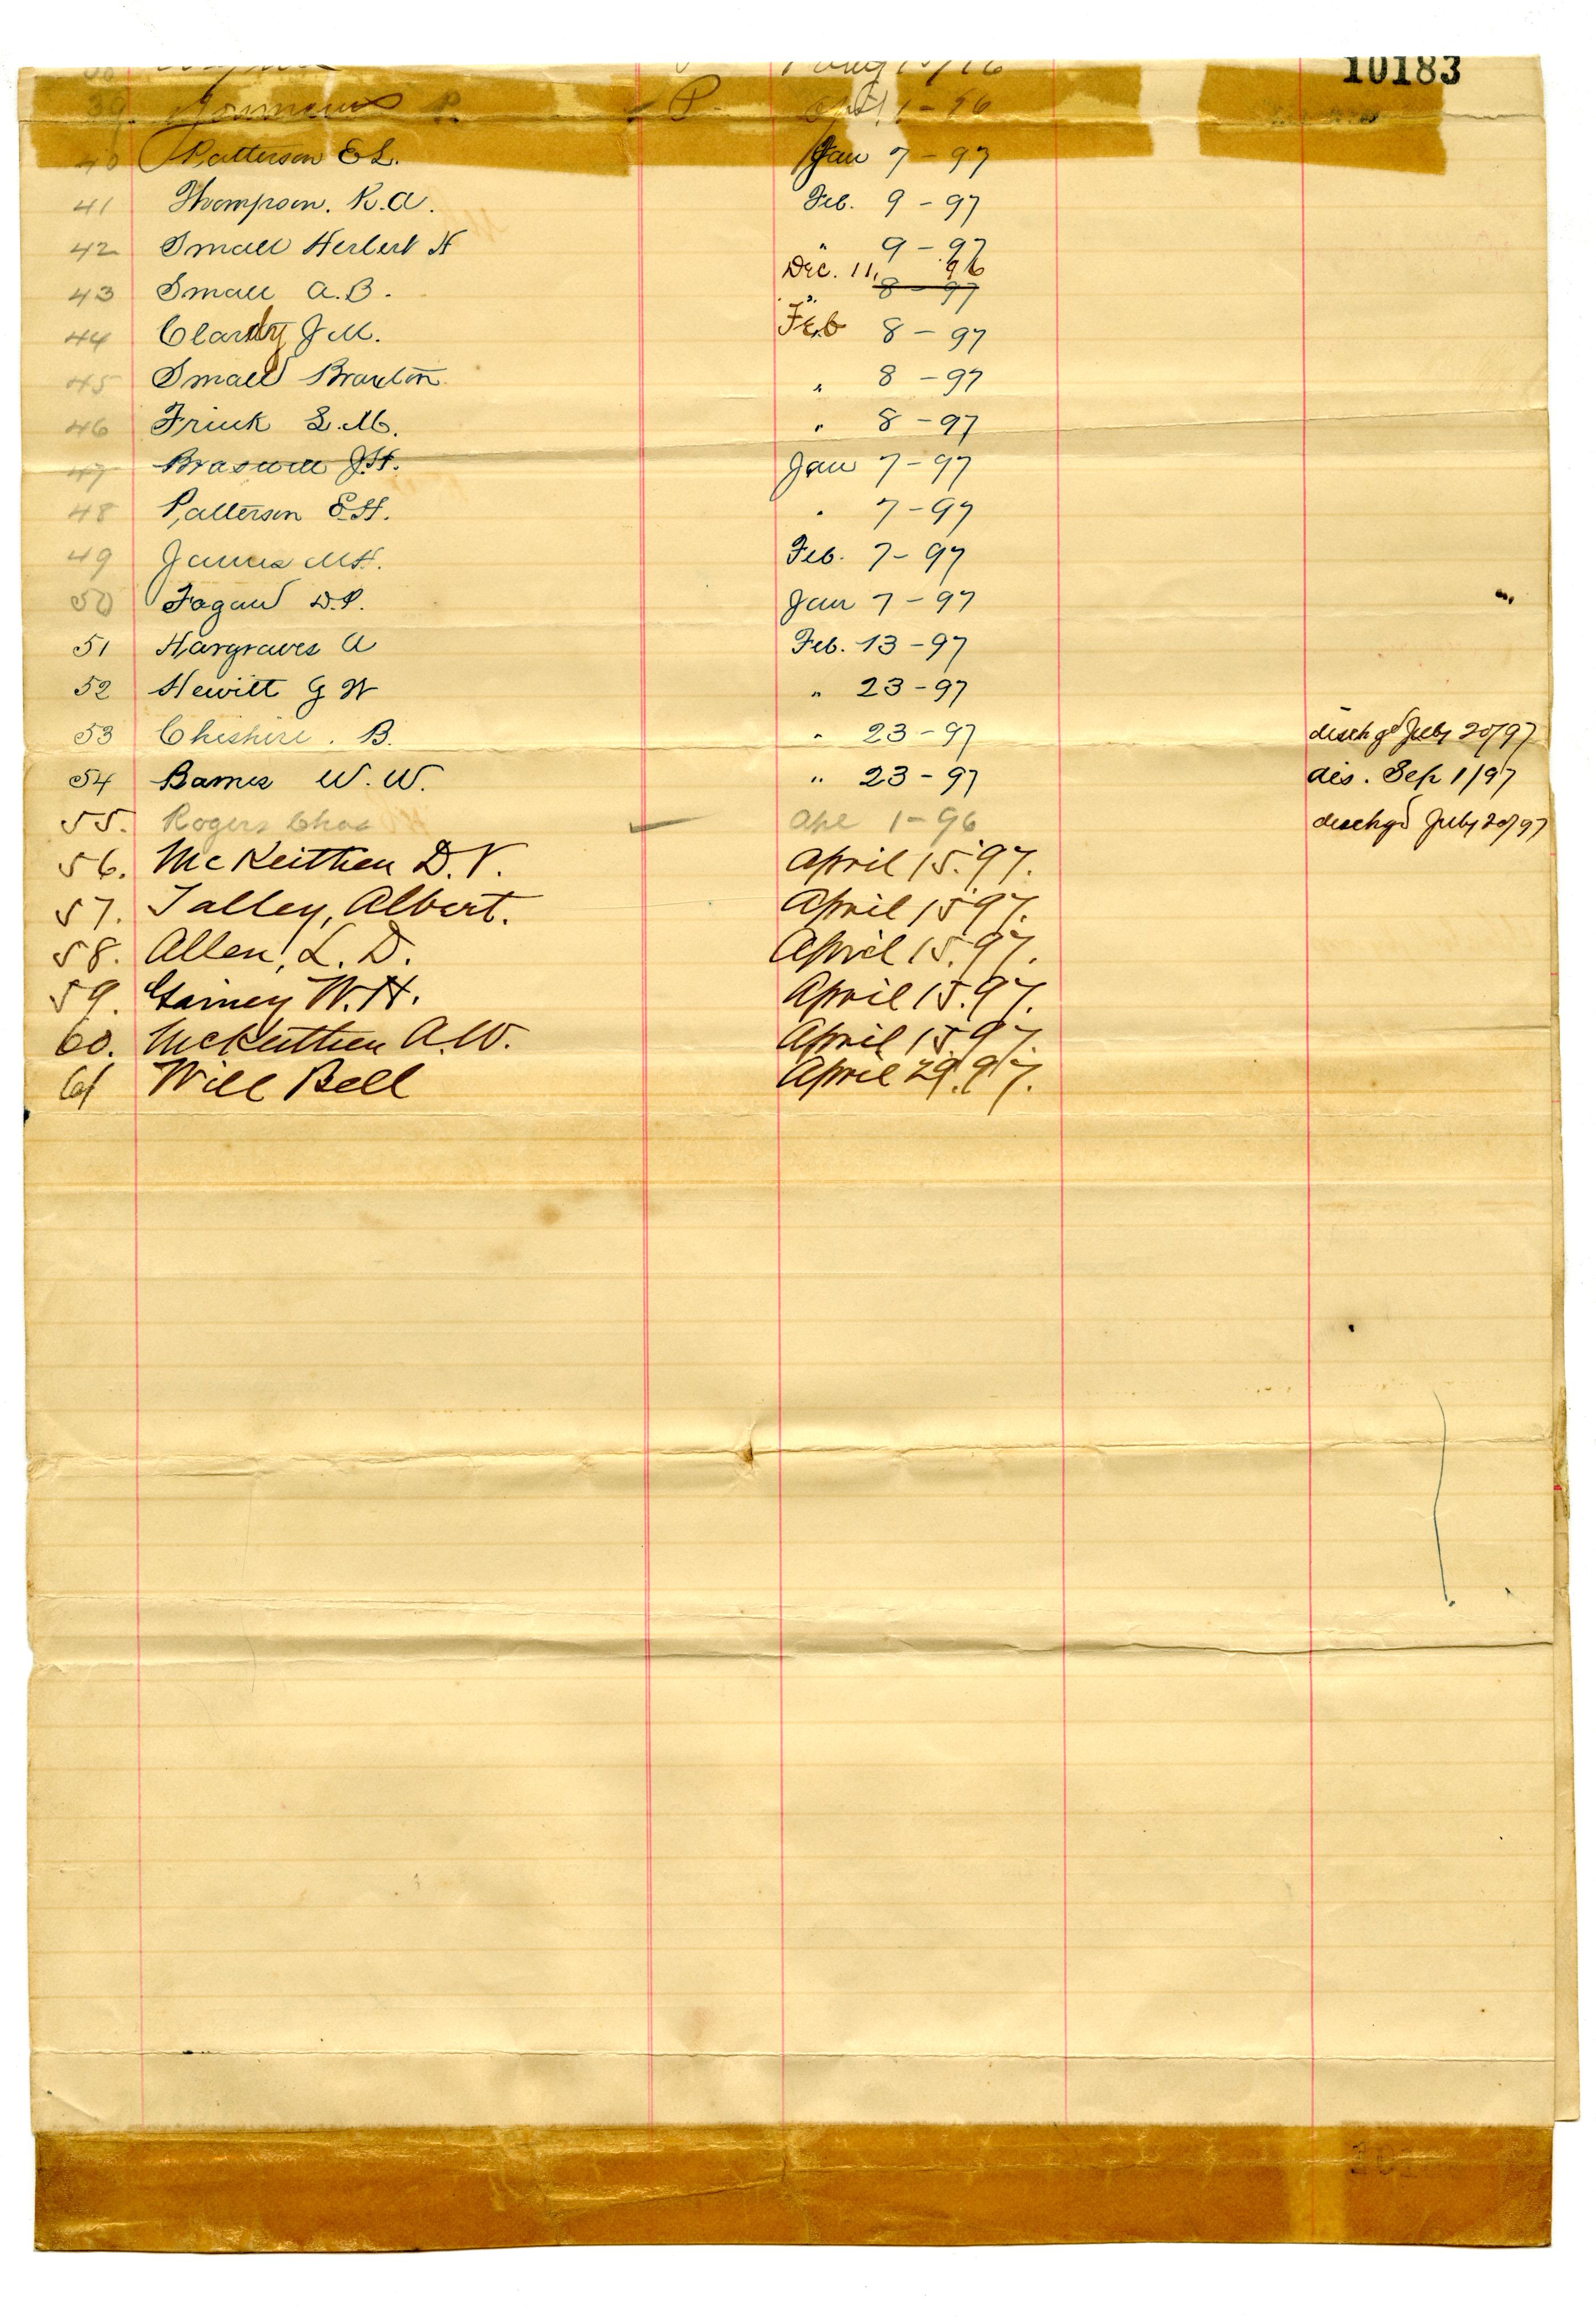 10183
39. P. P. Apl 1 - 96
40 Patterson E L. Jan 7 - 97
41 Thompson. R. A. Feb. 9 - 97
42 Small Herbert H " 9 - 97
Dec. 11, 96
43 Small A. B. " 8 - 97
44 Clardy J M. Feb 8 - 97
45 Small Braxton " 8 - 97
46 Frink L. M. " 8 - 97
47 Braswell J. H. Jan 7 - 97
48 Patterson E. H. " 7 - 97
49 James M H. Feb. 7 - 97
50 Fagan D. P. Jan 7 - 97
51 Hargraves A Feb. 13 - 97
52 Hewitt G W " 23 - 97
53 Cheshire. B. " 23 - 97 dischgd July 20/97
54 Barnes W. W. " 23 - 97 dis. Sep 1/97
55. Rogers Chas Apl 1 - 96 dischgd July 20/97
56. McKeithen D. V. April 15. 97.
57. Talley, Albert. April 15 97.
58. Allen, L. D. April 15. 97.
59. Gainey W. H. April 15. 97.
60. McKeithen A. W. April 15 97.
61 Will Bell April 29. 97.